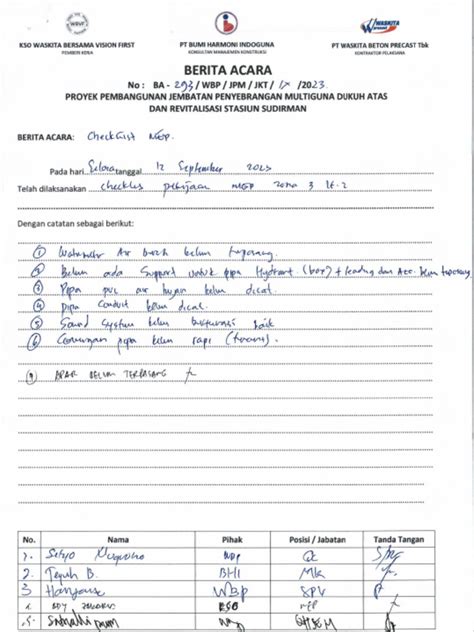 WBVF
WASKITA
KSO WASKITA BERSAMA VISION FIRST
PEMBERI KERJA
PT BUMI HARMONI INDOGUNA
KONSULTAN MANAJEMEN KONSTRUKSI
PT WASKITA BETON PRECAST Tbk
KONTRAKTOR PELAKSANA
BERITA ACARA
No : BA - 293 / WBP / JPM / JKT / IX /2023
PROYEK PEMBANGUNAN JEMBATAN PENYEBRANGAN MULTIGUNA DUKUH ATAS
DAN REVITALISASI STASIUN SUDIRMAN
BERITA ACARA: Checklist MEP.
Pada hari Selasa tanggal 12 September 2023
Telah dilaksanakan checklis pekerjaan MEP zona 3 lt-2
Dengan catatan sebagai berikut:
1 Watermeter Air bersih belum terpasang
2 Belum ada Support untuk pipa Hydrant (box) + leading dan Acc. belum terpasang
3 Pipa pvc air hujan belum dicat.
4 pipa Conduit belum dicat.
5 Sound System belum berfungsi baik
6 pipa belum rapi
7 APAR BELUM TERPASANG
No. Nama Pihak Posisi / Jabatan Tanda Tangan
1. Setyo Nugroho QC
2. Teguh B. BHI MK
3 WBP SPV
4 KSO MEP
5